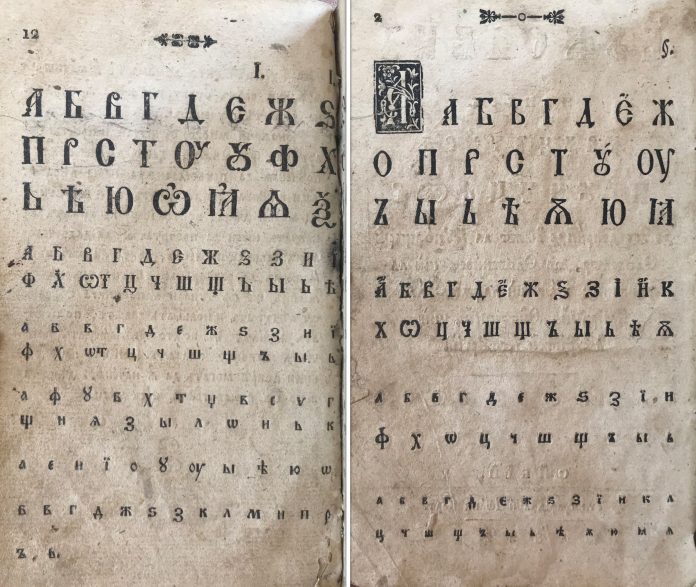 12
I.
А Б В Г Д Є Ж Ѕ
П Р С Т Ѹ Ꙋ Ф Х
Ь Ѣ Ю Ѽ Ꙗ Ѧ Ѯ
А Б В Г Д Е Ж Ѕ З И
Ф Х Ѿ Ц Ч Ш Щ Ъ Ы Ь Ѣ
а б в г д е ж ѕ з и ї
ф х ѿ ц ч ш щ ъ ы ь
а ф ꙋ б х т ц в с ѵ г
щ н ѧ з ы л ѡ и ь к
а е и ї о ꙋ ѹ ы ѣ ю ѡ
б в г д ж ѕ з к л м н п р
ъ ь
2
Ꙗ А Б В Г Д Є Ж
О П Р С Т Ꙋ ОУ
Ъ Ы Ь Ѣ Ѫ Ю Ꙗ
А Б В Г Д Е Ж Ѕ З І Й К
Х Ѡ Ц Ч Ш Щ Ъ Ы Ь Ѣ Ѫ
а б в г д е ж ѕ з ї и
ф х ѡ ц ч ш щ ъ ы ь
а б в г д е ж ѕ з ї и к л
ц ч ш щ ъ ы ь ѣ ѫ ю ꙗ ѧ